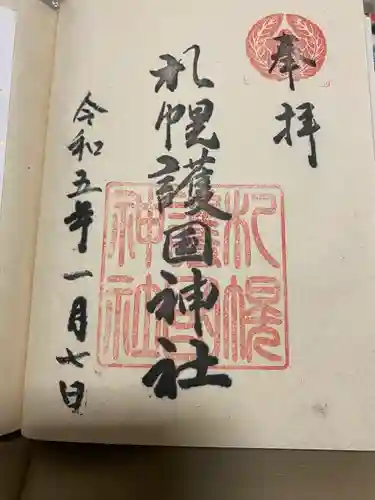 奉拝
札幌護国神社
令和五年一月七日
札幌
護国
神社